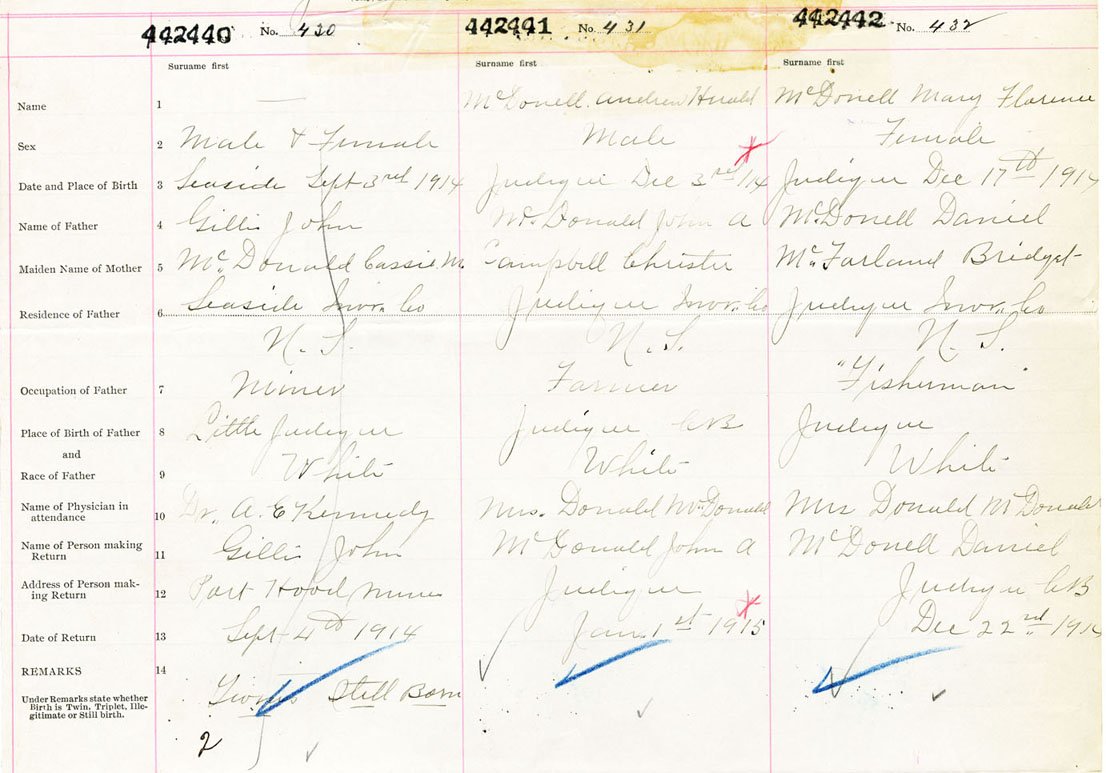 442440 No. 430 442441 No. 431 442442 No. 432
Surname first Surname first Surname first
Name 1 — McDonell Andrew McDonell Mary Florence
Sex 2 Male & Female Male Female
Date and Place of Birth 3 Seaside Sept 3rd 1914 Judique Dec 3rd /14 Judique Dec 17th 1914
Name of Father 4 Gillis John McDonald John A McDonell Daniel
Maiden Name of Mother 5 McDonald Cassie M. Campbell Christie McFarland Bridget
Residence of Father 6 Seaside Inver. Co Judique Inver. Co Judique Inver. Co
N. S. N. S. N. S.
Occupation of Father 7 Miner Farmer "Fisherman"
Place of Birth of Father 8 Little Judique Judique CB Judique
and
Race of Father 9 White White White
Name of Physician in
attendance 10 Dr. A. E Kennedy Mrs. Donald McDonald Mrs Donald McDonald
Name of Person making
Return 11 Gillis John McDonald John A McDonell Daniel
Address of Person mak-
ing Return 12 Port Hood Mines Judique Judique CB
Date of Return 13 Sept 4th 1914 Jan. 1st 1915 Dec 22nd 1914
REMARKS 14
Under Remarks state whether
Birth is Twin, Triplet, Ille-
gitimate or Still birth.
Twins Still Born
2